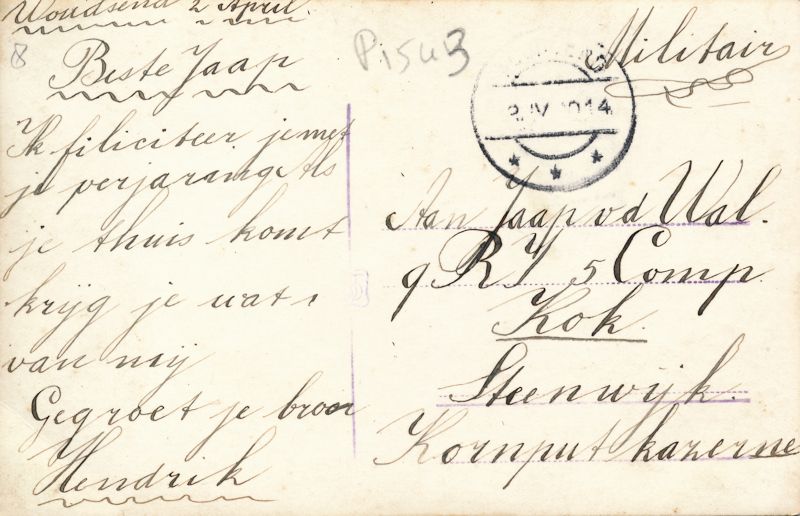 Woudsend 2 April.
8
Beste Jaap
Ik filiciteer je met
je verjarang Als
je thuis komt
krijg je wat
van mij
Gegroet je broer
Hendrik
P1543
Militair
Aan Jaap v d Wal.
9 R I 5 Comp
Kok.
Steenwijk.
Kornput kazerne